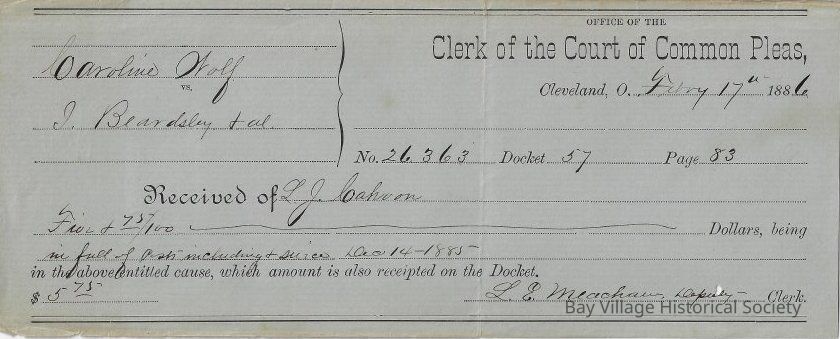 OFFICE OF THE
Clerk of the Court of Common Pleas,
Caroline Wolf
vs.
I. Beardsley & al.
Cleveland, O. Feby 17th 1886
No. 26363 Docket 57 Page 83
Received of L J. Cahoon
Five & 75/100 Dollars, being
in full of costs including & since Dec 14-1885
in the above entitled cause, which amount is also receipted on the Docket.
$ 5 75 L. E. Meacham, Deputy Clerk.
Bay Village Historical Society